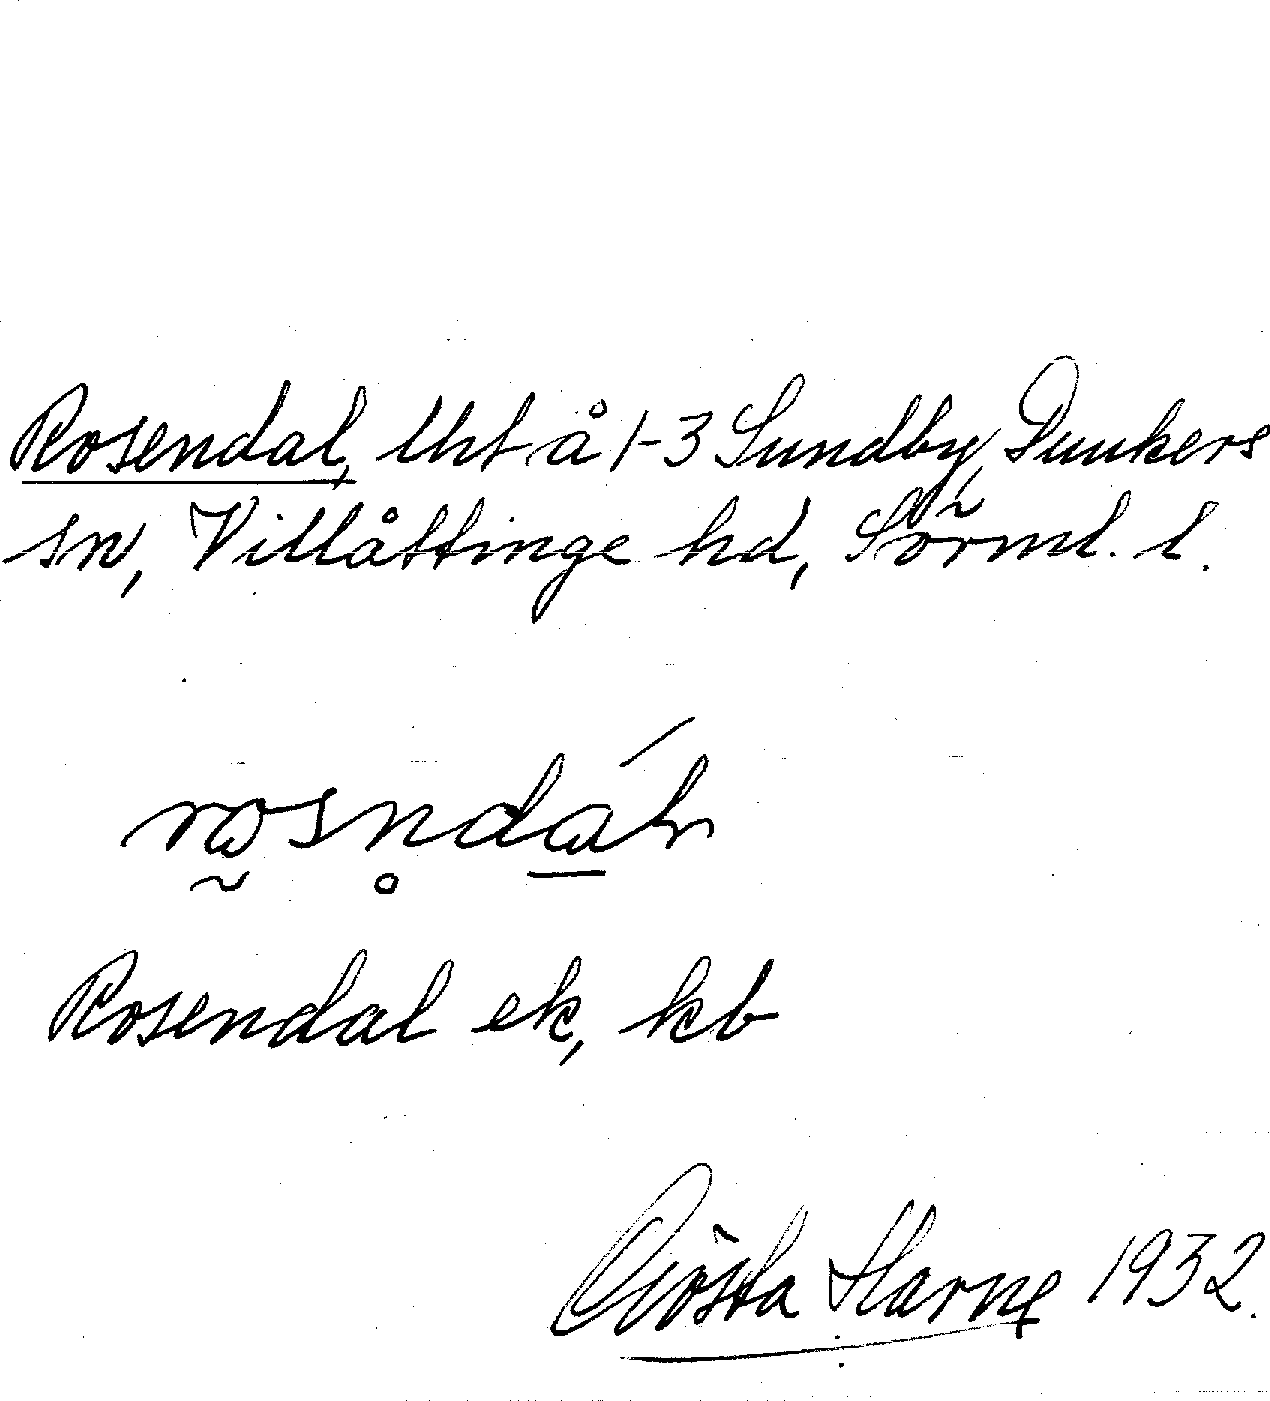 Rosendal, lht å 1-3 Sundby, Dunkers
sn, Villåttinge hd, Sörml. l.
Rosendal ek, kb
Gösta Harne 1932.